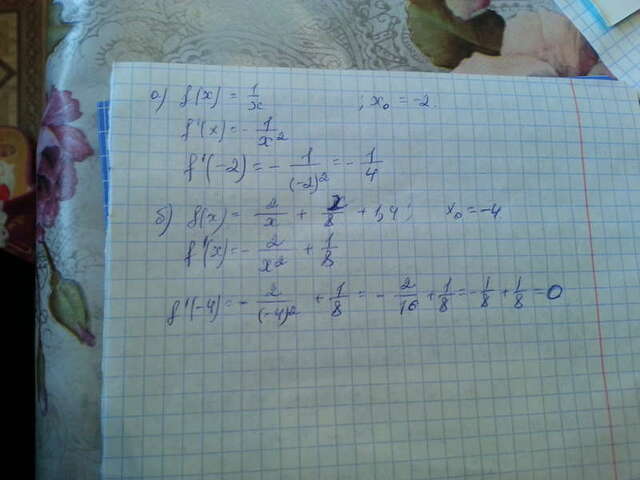 а) f(x) = 1/x ; x₀ = -2.
f'(x) = - 1/x²
f'(-2) = - 1/(-2)² = - 1/4
б) f(x) = 2/x + x/8 + 1,4; x₀ = -4
f'(x) = - 2/x² + 1/8
f'(-4) = - 2/(-4)² + 1/8 = - 2/16 + 1/8 = - 1/8 + 1/8 = 0